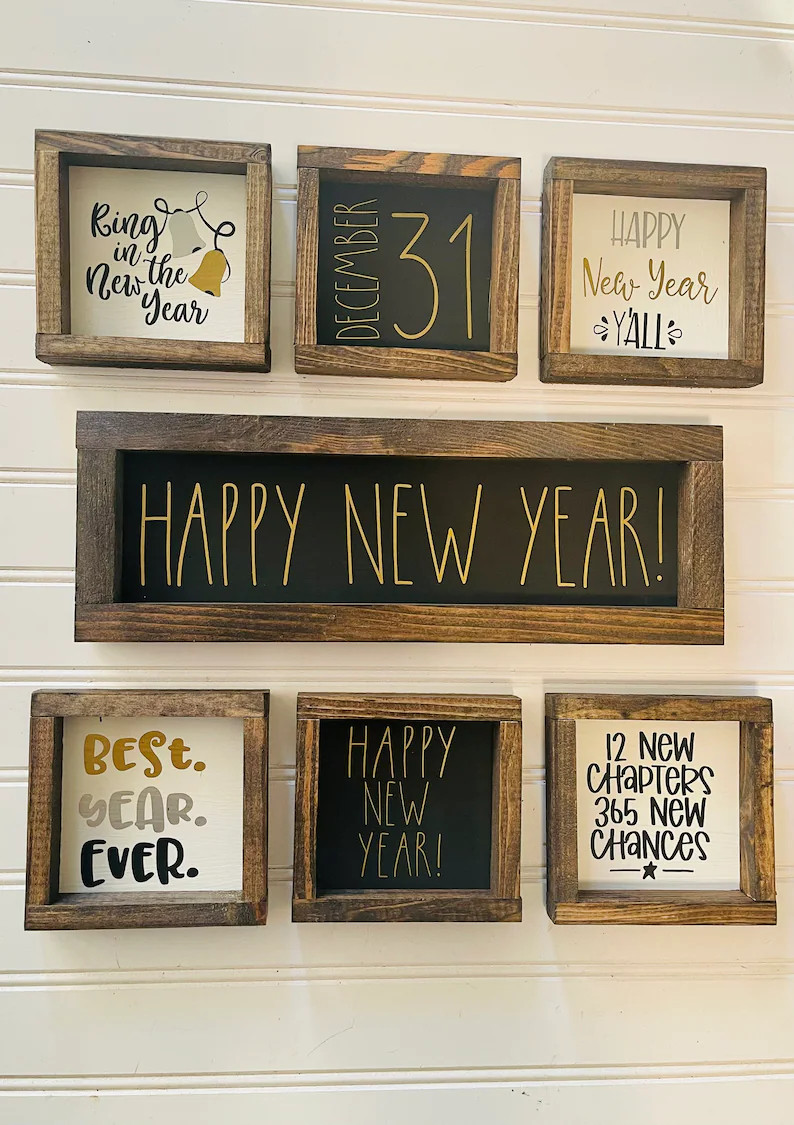 Ring
in the
New Year
DECEMBER 31
HAPPY
New Year
Y'ALL
HAPPY NEW YEAR!
BEST.
YEAR.
EVER.
HAPPY
NEW
YEAR!
12 NEW
CHAPTERS
365 NEW
CHANCES